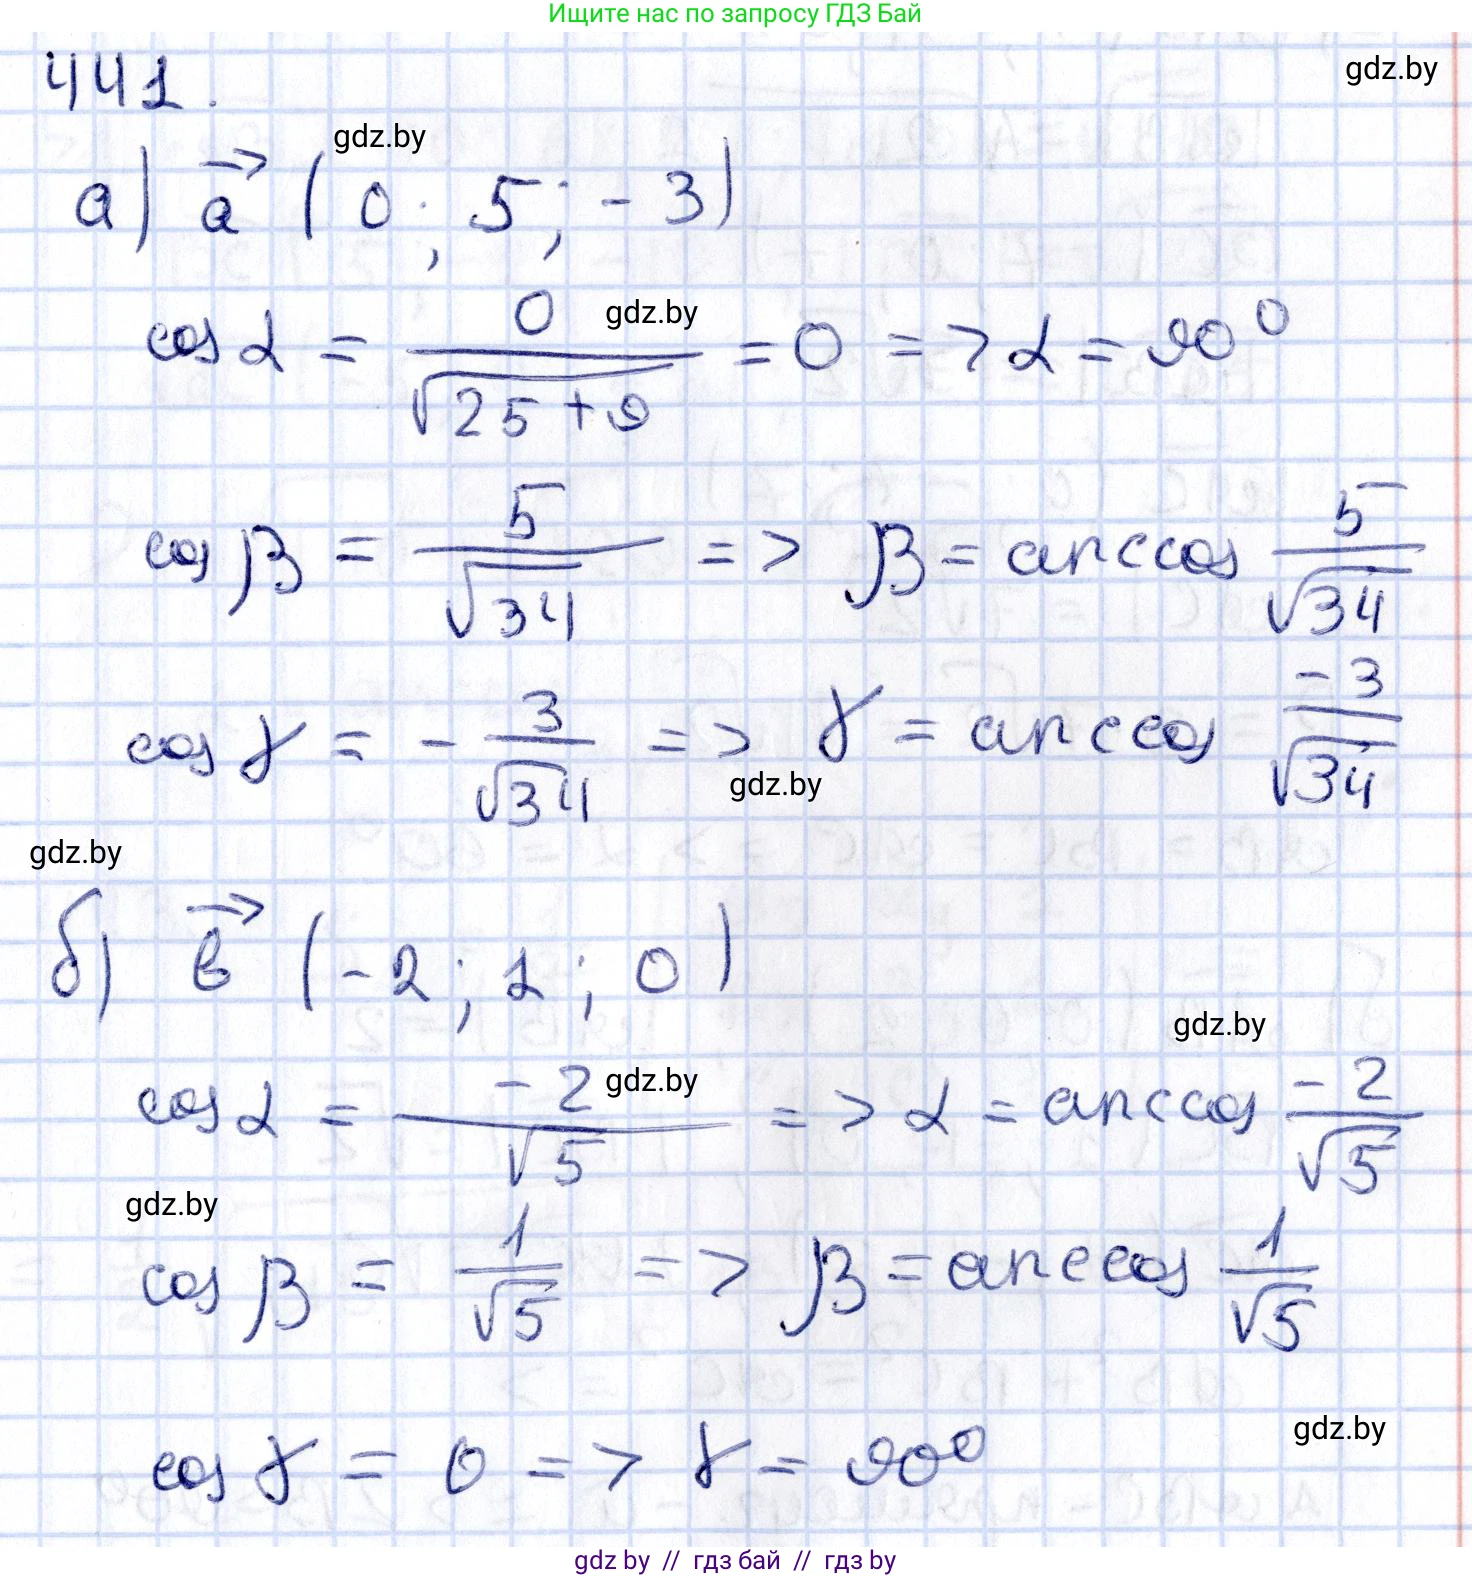 Ищите нас по запросу ГДЗ Бай
441.
gdz.by
gdz.by
а) a⃗ (0; 5; -3)
cos α = 0/√(25+9) = 0 => α = 90°
gdz.by
cos β = 5/√34 => β = arccos 5/√34
cos γ = - 3/√34 => γ = arccos -3/√34
gdz.by
gdz.by
б) в⃗ (-2; 1; 0)
gdz.by
cos α = -2/√5 => α = arccos -2/√5
gdz.by
gdz.by
cos β = 1/√5 => β = arccos 1/√5
gdz.by
cos γ = 0 => γ = 90°
gdz.by // гдз бай // гдз by